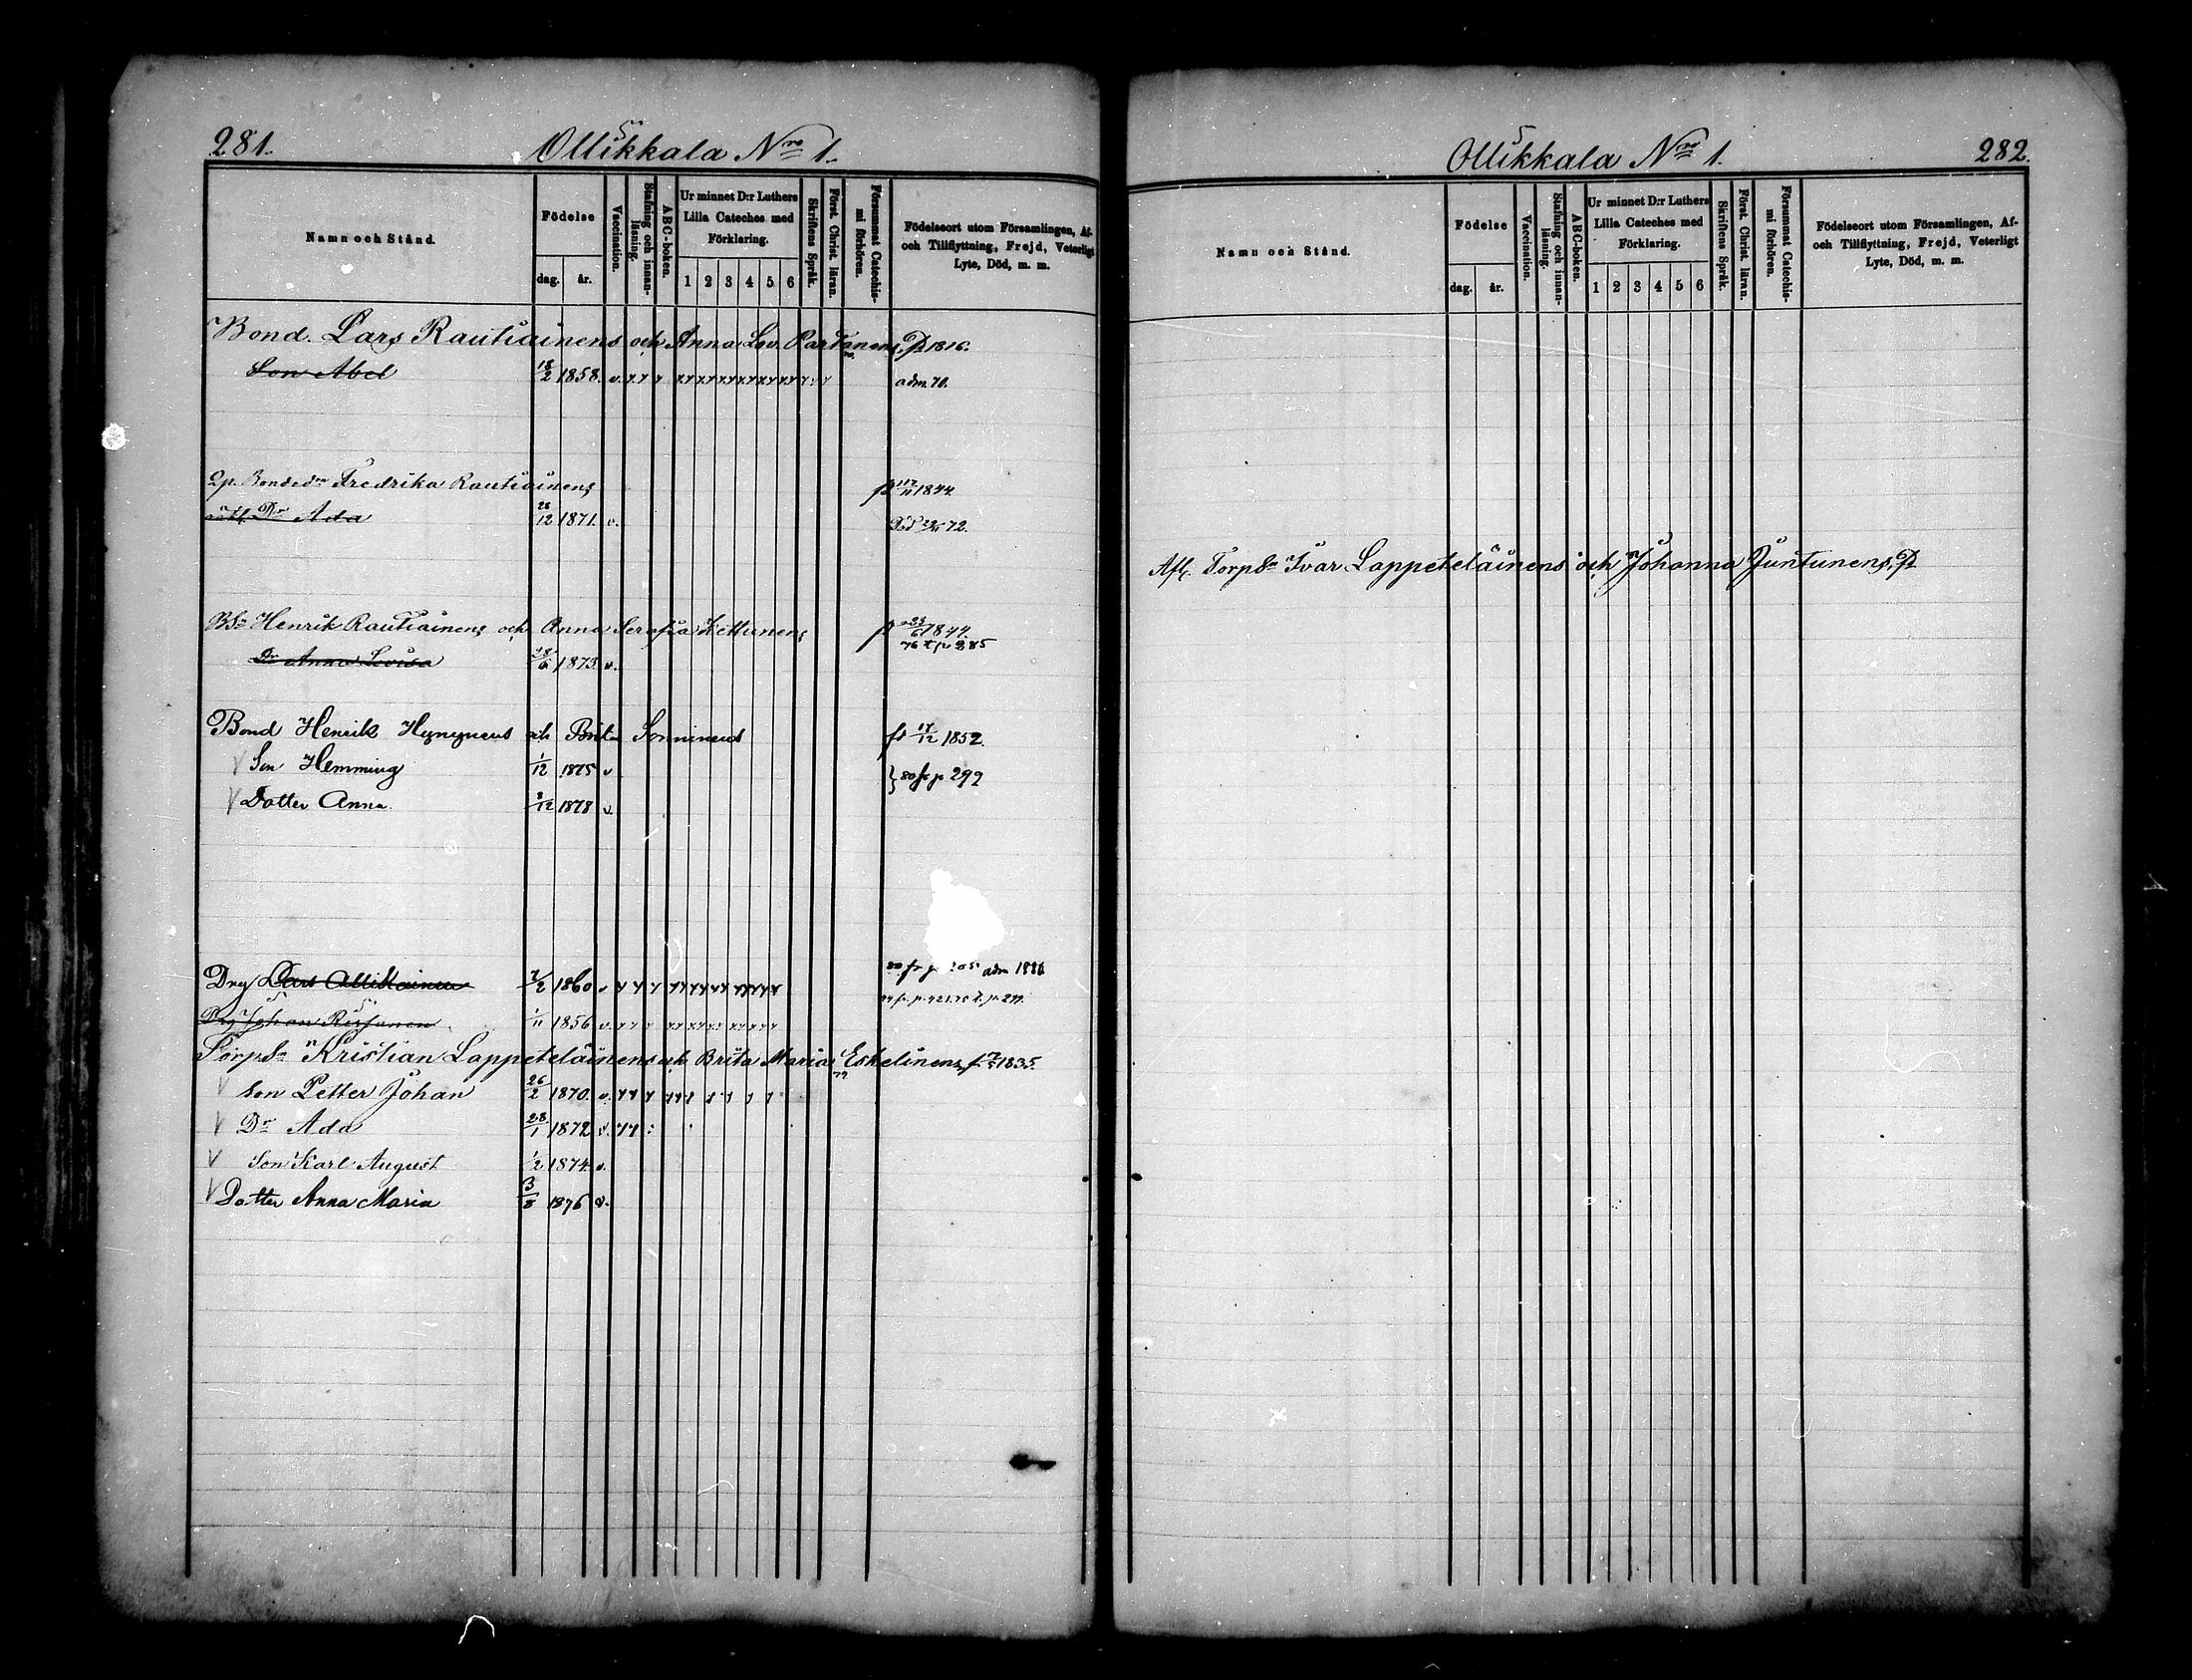 281.
Ollikkala Nro 1.
Namn och Stånd.
Födelse
dag.
år.
Vaccination.
Stafning och innanläsning.
ABC-boken.
Ur minnet D:r Luthers
Lilla Cateches med
Förklaring.
1 2 3 4 5 6
Skriftens Språk.
Först. Christ. läran.
Försummat Catechismi förhören.
Födelseort utom Församlingen, Af-
och Tillflyttning, Frejd, Veterligt
Lyte, Död, m. m.
Bond. Lars Rautiainens och Anna Lov. Partanens, 1816.
Son Abel 18/2 1858. v. adm. 70.
Bonded:n Fredrika Rautiainens 1844.
Dr Ada 28/12 1871. v. Död 72.
BSn Henrik Rautiainens och Anna Serafia Kettunens 1844.
76 t p 285
Dr Anna Lovisa /6 1873 v.
Bond Henrik Hynynens och Brita Sonninens fs 17/12 1852.
Son Hemming 1/12 1875 v } 80 fr p 292
Dotter Anna. /12 1878 v.
Drg Lars Ollikainen 7/2 1860 v adm 1886
Drg Johan 1/11 1856 v.
TorpSn Kristian Lappeteläinens och Brita Maria Eskelinens, 1835.
Son Petter Johan 26/2 1870. v.
Dr Ada 28/1 1872 v.
Son Karl August 1/2 1874 v.
Dotter Anna Maria 3/8 1876 v.
Ollikkala Nro 1.
282.
Namn och Stånd.
Födelse
dag.
år.
Vaccination.
Stafning och innanläsning.
ABC-boken.
Ur minnet D:r Luthers
Lilla Cateches med
Förklaring.
1 2 3 4 5 6
Skriftens Språk.
Först. Christ. läran.
Försummat Catechismi förhören.
Födelseort utom Församlingen, Af-
och Tillflyttning, Frejd, Veterligt
Lyte, Död, m. m.
Afl. TorpSn Ivar Lappeteläinens och Johanna Juntunens,